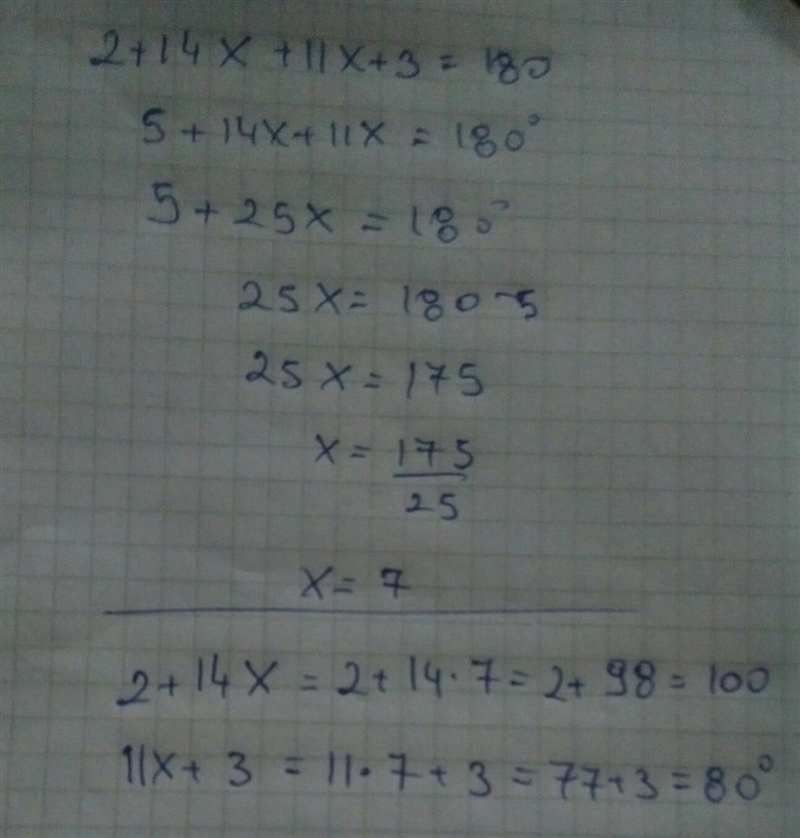 2+14X+11X+3 = 180
5+14X+11X = 180°
5+25X = 180°
25X = 180-5
25X = 175
X = 175/25
X = 7
2+14X = 2+14·7 = 2+98 = 100
11X+3 = 11·7+3 = 77+3 = 80°